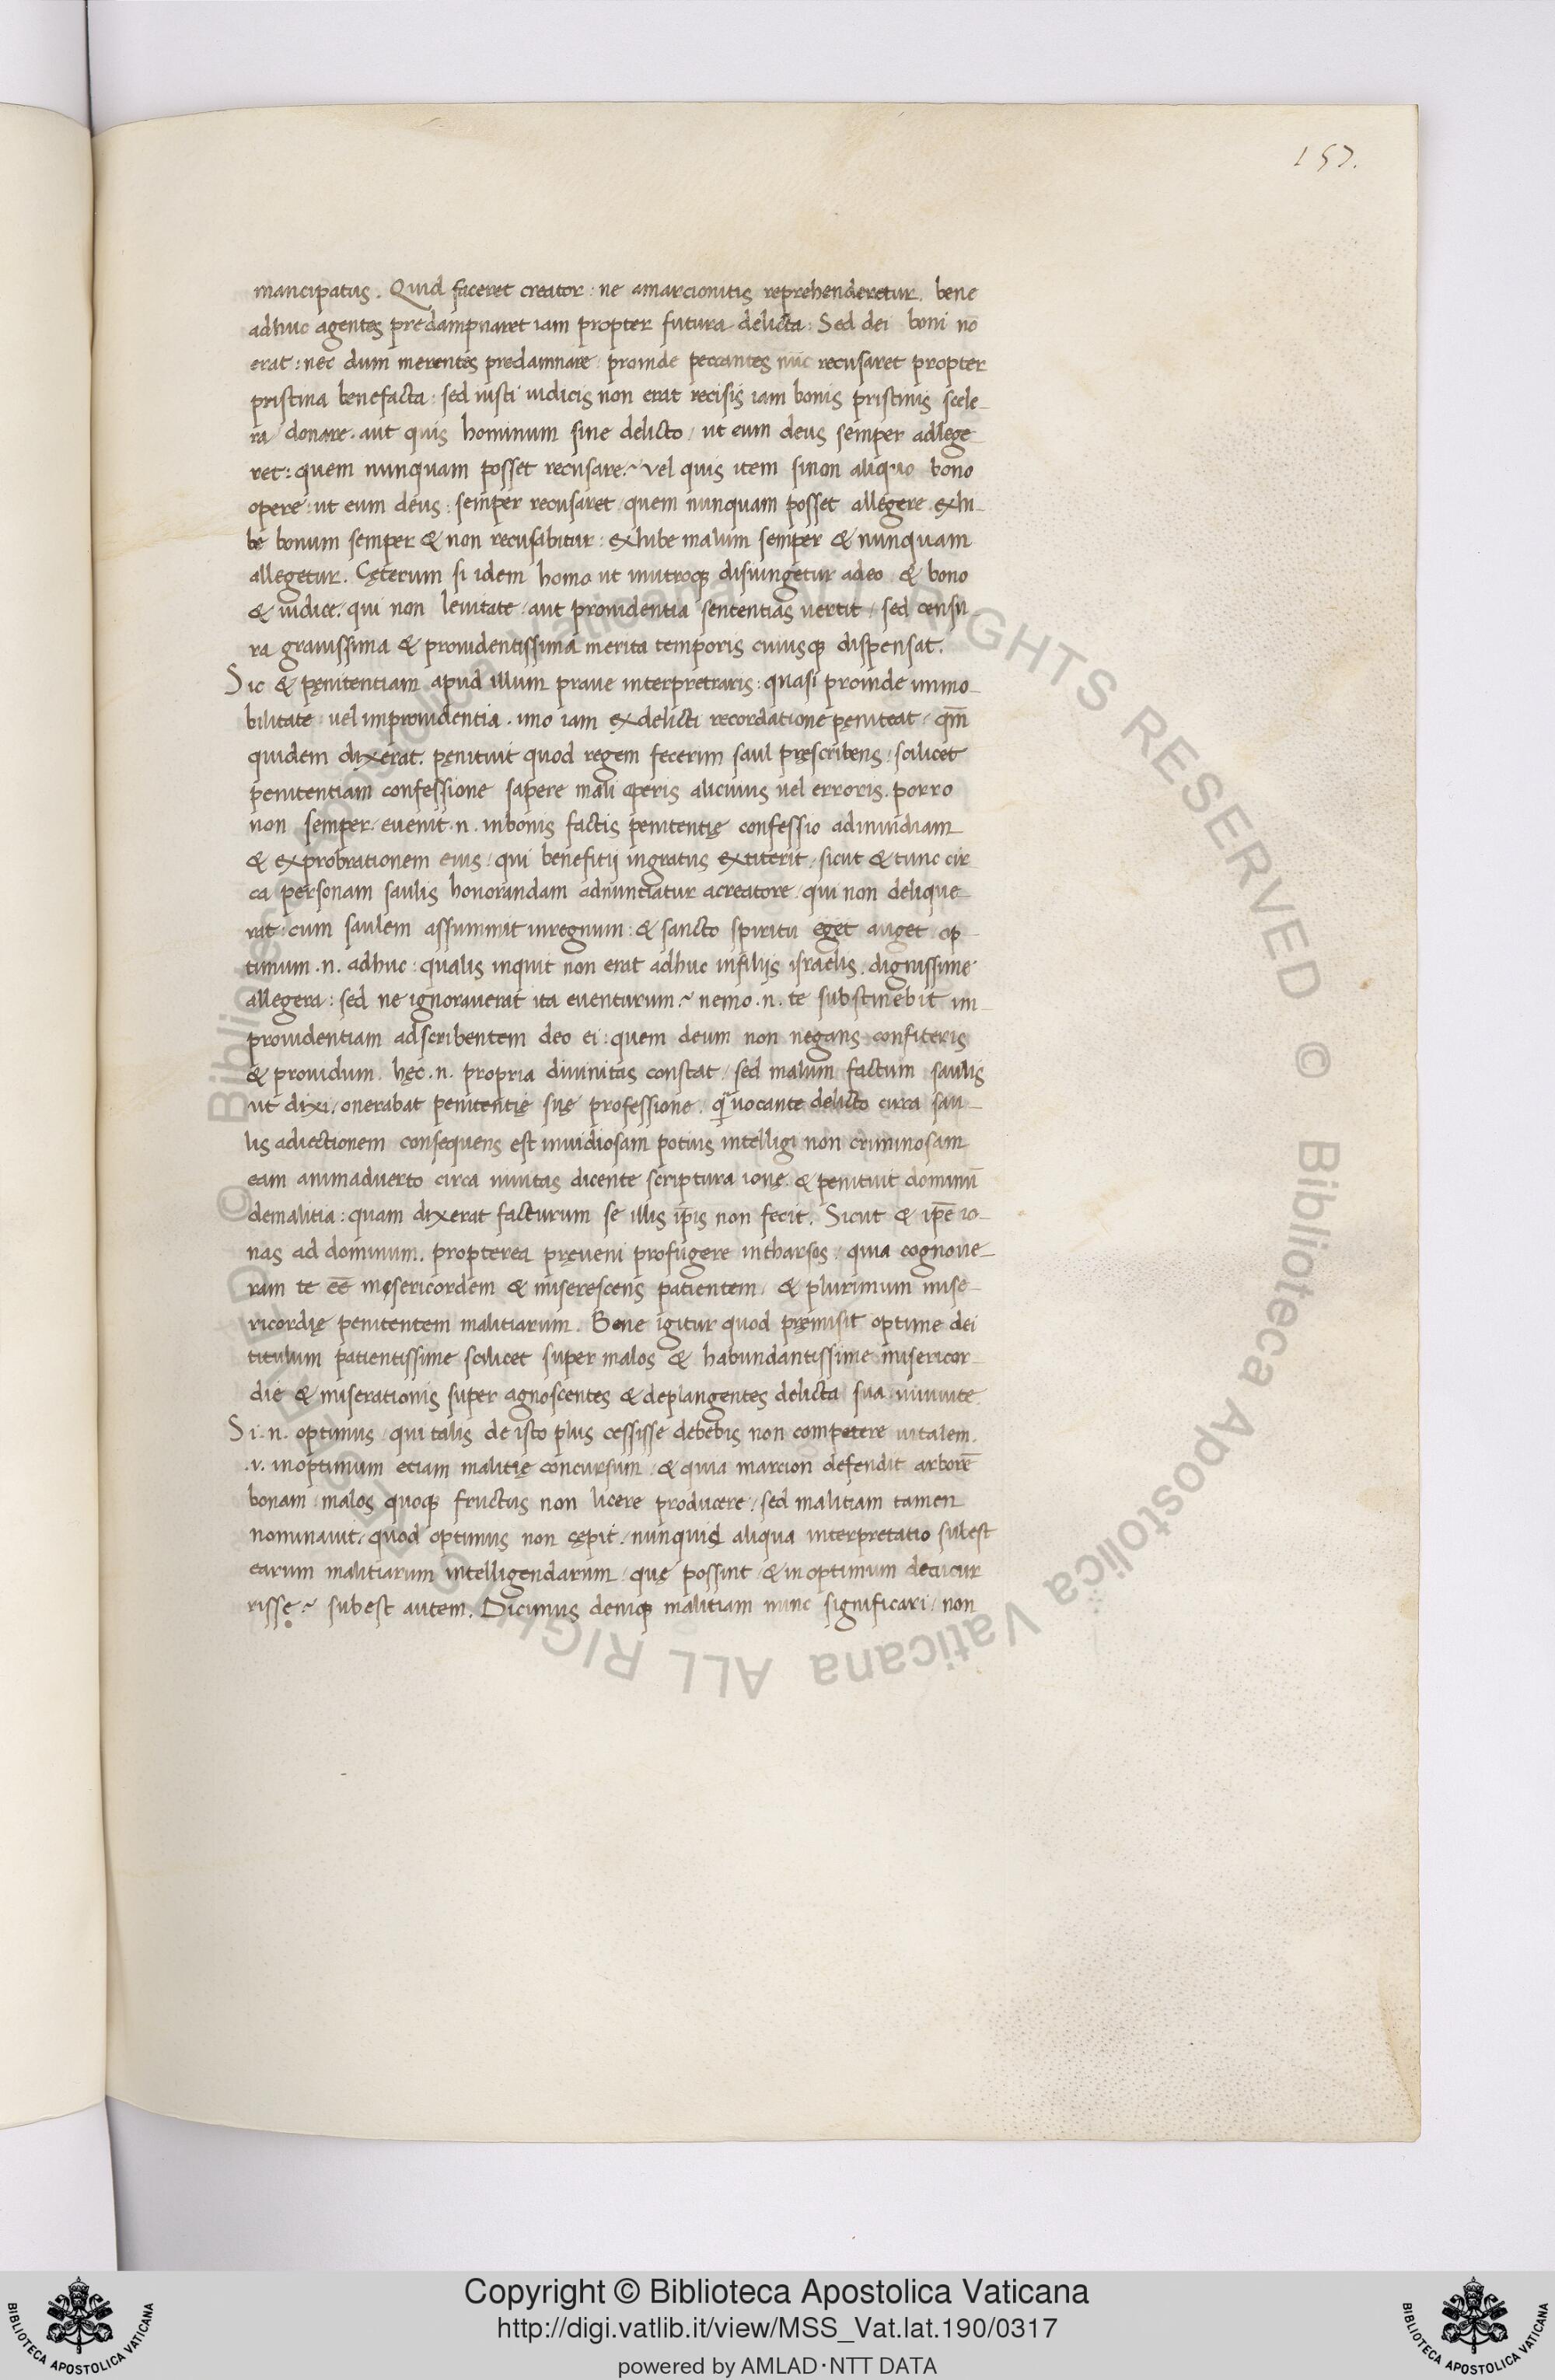 157.
mancipatus. Quid faceret creator: ne amarcionitis reprehenderetur. bene
adhuc agentes predampnaret iam propter futura delicta: Sed dei boni nō
erat: nec dum merentes predamnare: proinde peccantes nūc recusaret propter
pristina benefacta: sed iusti iudicis non erat recisis iam bonis pristinis scele-
ra donare. aut quis hominum sine delicto, ut eum deus semper adlege
ret: quem nunquam posset recusare? vel quis item sinon aliquo bono
opere: ut eum deus: semper recusaret quem nunquam posset allegere. exhi-
be bonum semper & non recusabitur: exhibe malum semper & nunquam
allegetur. Cęterum si idem homo ut inutroq; disiungetur adeo & bono
& iudice. qui non levitate, aut providentia sententias vertit, sed censu
ra gravissima & providentissima merita temporis cuiusq; dispensat.
Sic & pęnitentiam apud illum prave interpretraris: quasi proinde immo-
bilitate vel improvidentia. imo iam exdelicti recordatione pęniteat, qm̄
quidem dixerat. pęnituit quod regem fecerim saul pręscribens, scilicet
penitentiam confessione sapere mali operis alicuius vel erroris. porro
non semper. evenit .n. inbonis factis penitentię confessio adinvidiam
& exprobrationem eius, qui benefitij ingratus extiterit, sicut & tunc cir
ca personam saulis honorandam adnunciatur acreatore, qui non delique
rat, cum saulem assummit inregnum: & sancto spiritu eget auget op-
timum .n. adhuc: qualis inquit non erat adhuc infilijs israelis. dignissime
allegera: sed ne ignoraverat ita eventurum? nemo .n. te substinebit im-
providentiam adscribentem deo ei: quem deum non negans confiteris
& providum. hęc .n. propria divinitas constat, sed malum factum saulis
ut dixi, onerabat penitentię suę professione. vocante delicto circa sau-
lis adiectionem consequens est invidiosam potius intelligi non criminosam
eam animadverto circa ninitas dicente scriptura ionę. & penituit dominū
demalitia: quam dixerat facturum se illis ip̄is non fecit. Sicut & ip̄e io-
nas ad dominum. propterea pręveni profugere intharsos, quia cognove-
ram te eē mesericordem & miserescens patientem, & plurimum mise-
ricordię penitentem malitiarum. Bene igitur quod pręmisit optime dei
titulum patientissime scilicet super malos & habundantissime misericor-
die & miserationis super agnoscentes & deplangentes delicta sua ninivite
Si .n. optimus qui talis de isto plus cessisse debebis non competere in talem.
.i. inoptimum etiam malitię concursum, & quia marcion defendit arborē
bonam malos quoq; fructus non licere producere, sed malitiam tamen
nominavit, quod optimus non cępit. nunquid aliqua interpretatio subest
earum malitiarum intelligendarum quę possint & in optimum decucur
rissę? subest autem. Dicimus deniq; malitiam nunc significari, non
Copyright © Biblioteca Apostolica Vaticana
http://digi.vatlib.it/view/MSS_Vat.lat.190/0317
powered by AMLAD·NTT DATA